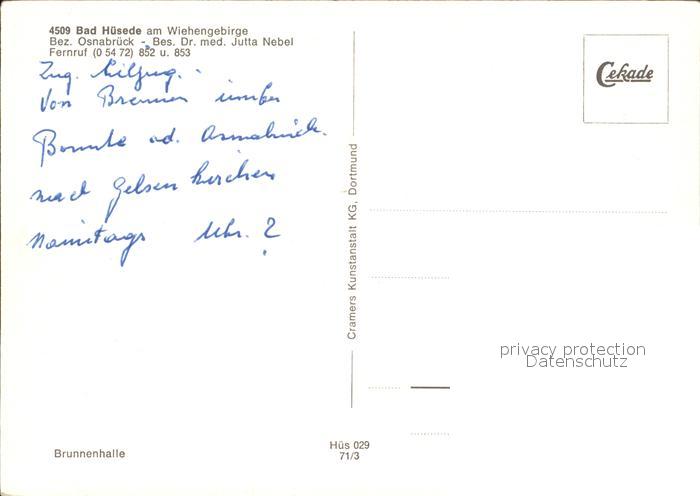 4509 Bad Hüsede am Wiehengebirge
Bez. Osnabrück - Bes. Dr. med. Jutta Nebel
Fernruf (0 54 72) 852 u. 853
Zug. Eilzug. -
Von Bremen über
Bomte od. Osnabrück.
nach Gelsenkirchen
Uhr. ?
Cekade
Cramers Kunstanstalt KG, Dortmund
privacy protection
Datenschutz
Brunnenhalle
Hüs 029
71/3